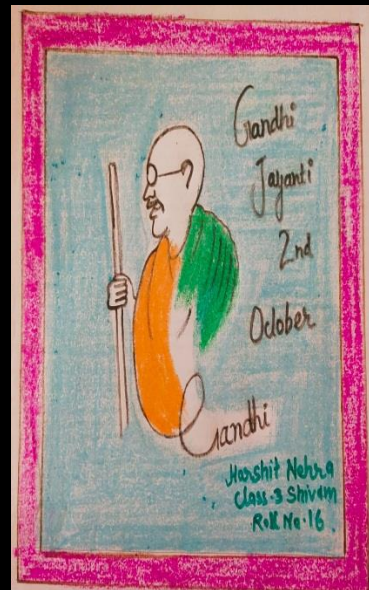 Gandhi
Jayanti
2nd
October
Gandhi
Harshit Nehra
Class-3 Shivam
Roll No.16